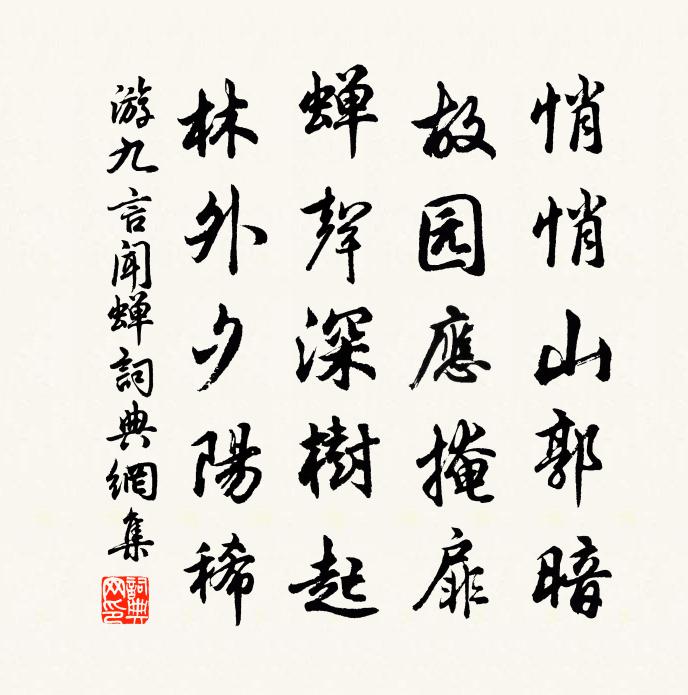 悄悄山郭暗
故园應掩扉
蝉聲深樹起
林外夕陽稀
游九言聞蝉詞典網集
詞典網印